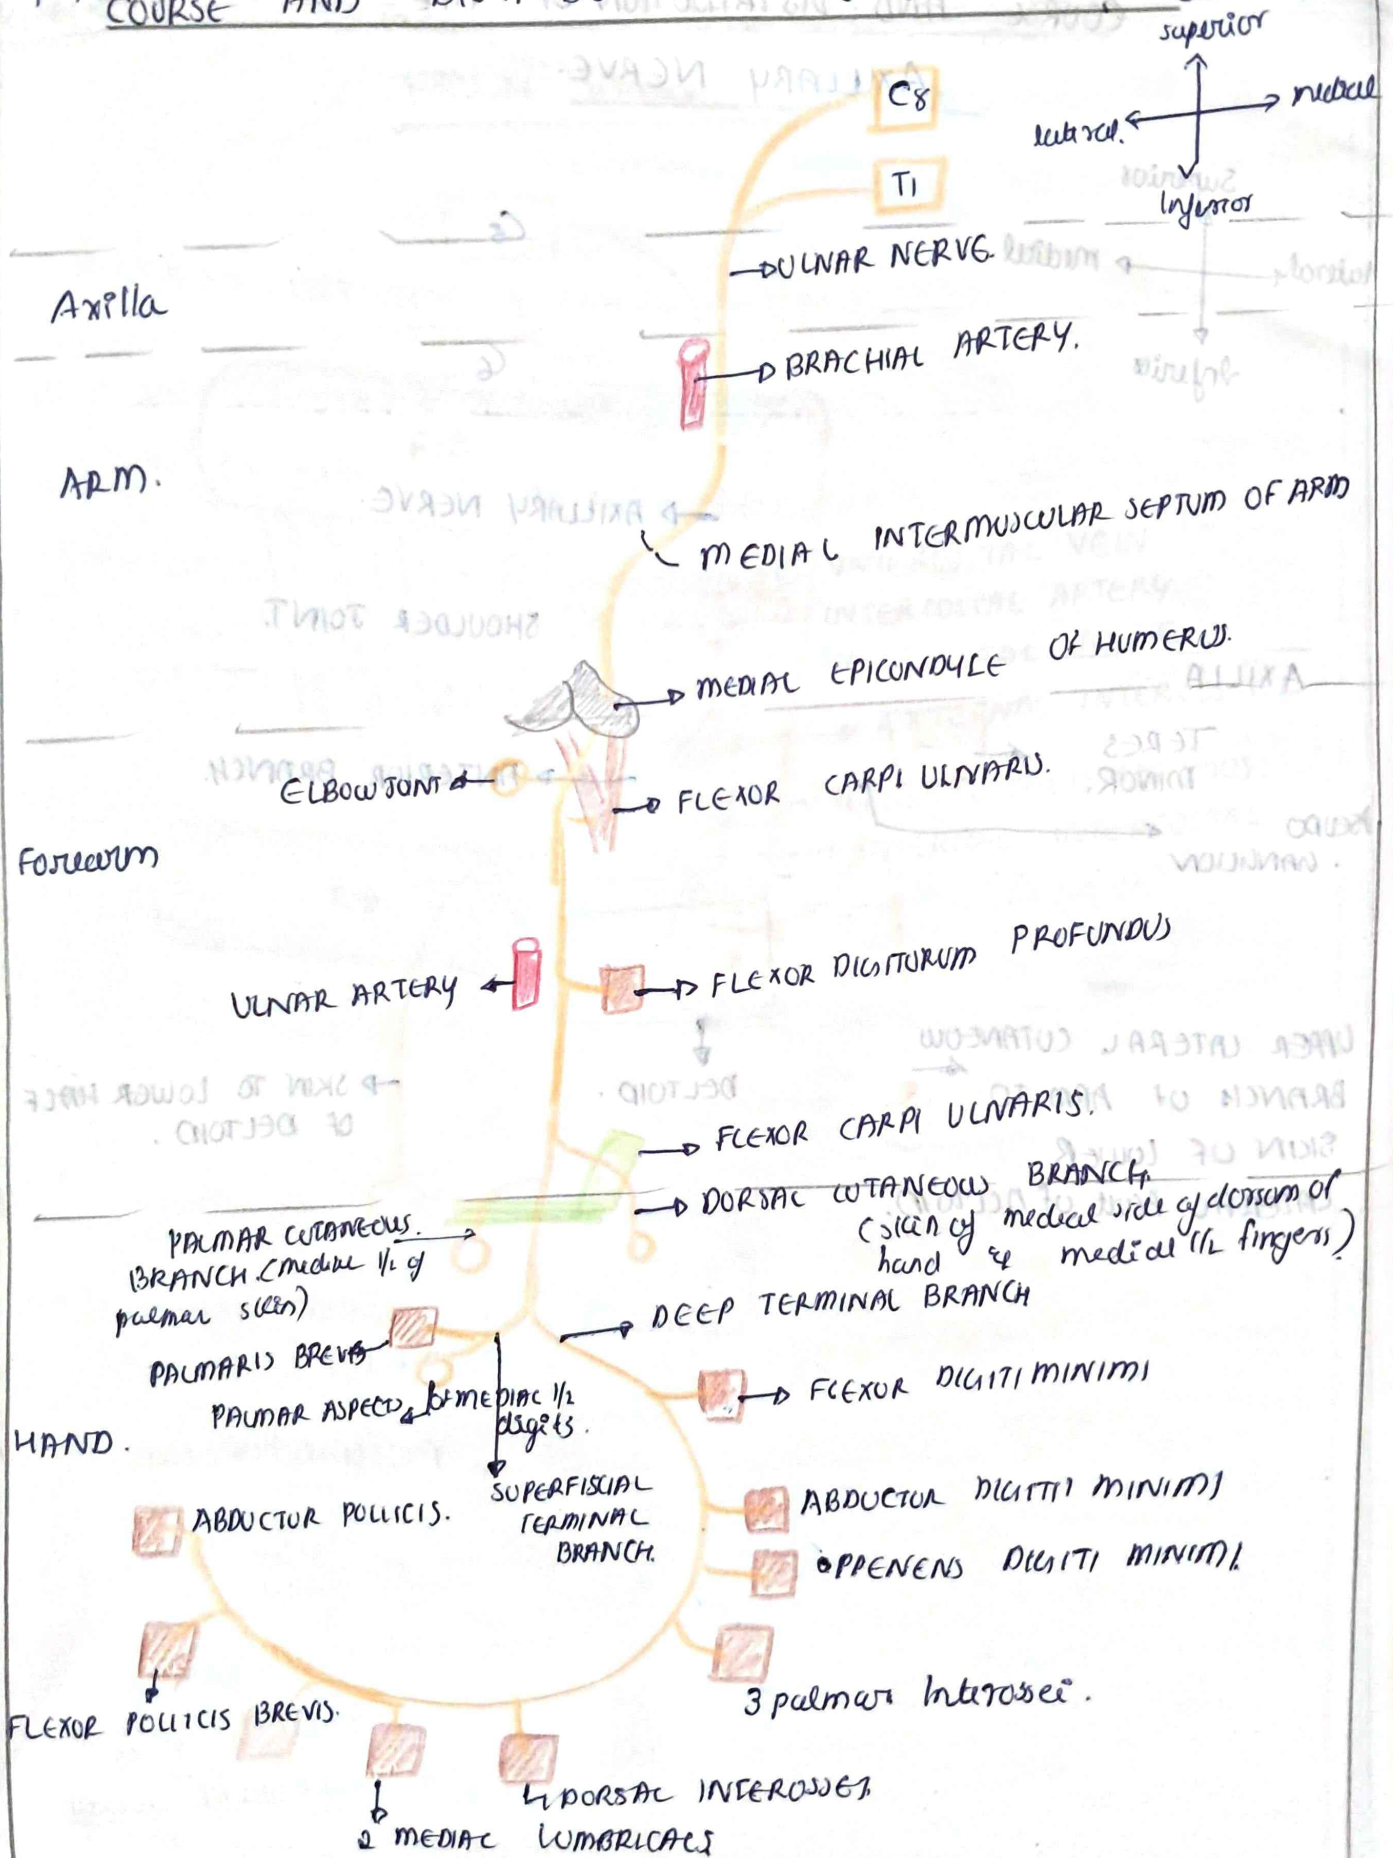 COURSE AND
superior
medial
lateral.
Inferior
C8
T1
ULNAR NERVE.
Axilla
BRACHIAL ARTERY.
ARM.
MEDIAL INTERMUSCULAR SEPTUM OF ARM
MEDIAL EPICONDYLE OF HUMERUS.
ELBOW JOINT
FLEXOR CARPI ULNARIS.
Forearm
ULNAR ARTERY
FLEXOR DIGITORUM PROFUNDUS
FLEXOR CARPI ULNARIS.
DORSAL CUTANEOUS BRANCH.
(skin of medical side of dorsum of
hand & medical 1 1/2 fingers)
PALMAR CUTANEOUS.
BRANCH. (medial 1/2 of
palmar skin)
DEEP TERMINAL BRANCH
PALMARIS BREVIS
FLEXOR DIGITI MINIMI
PALMAR ASPECT OF MEDIAL 1/2
digits.
HAND.
SUPERFISCIAL
TERMINAL
BRANCH.
ABDUCTOR POLLICIS.
ABDUCTOR DIGITTI MINIMI
OPPENENS DIGITI MINIMI.
3 palmar Interossei.
FLEXOR POLLICIS BREVIS.
4 DORSAL INTEROSSEI
2 MEDIAL LUMBRICALS